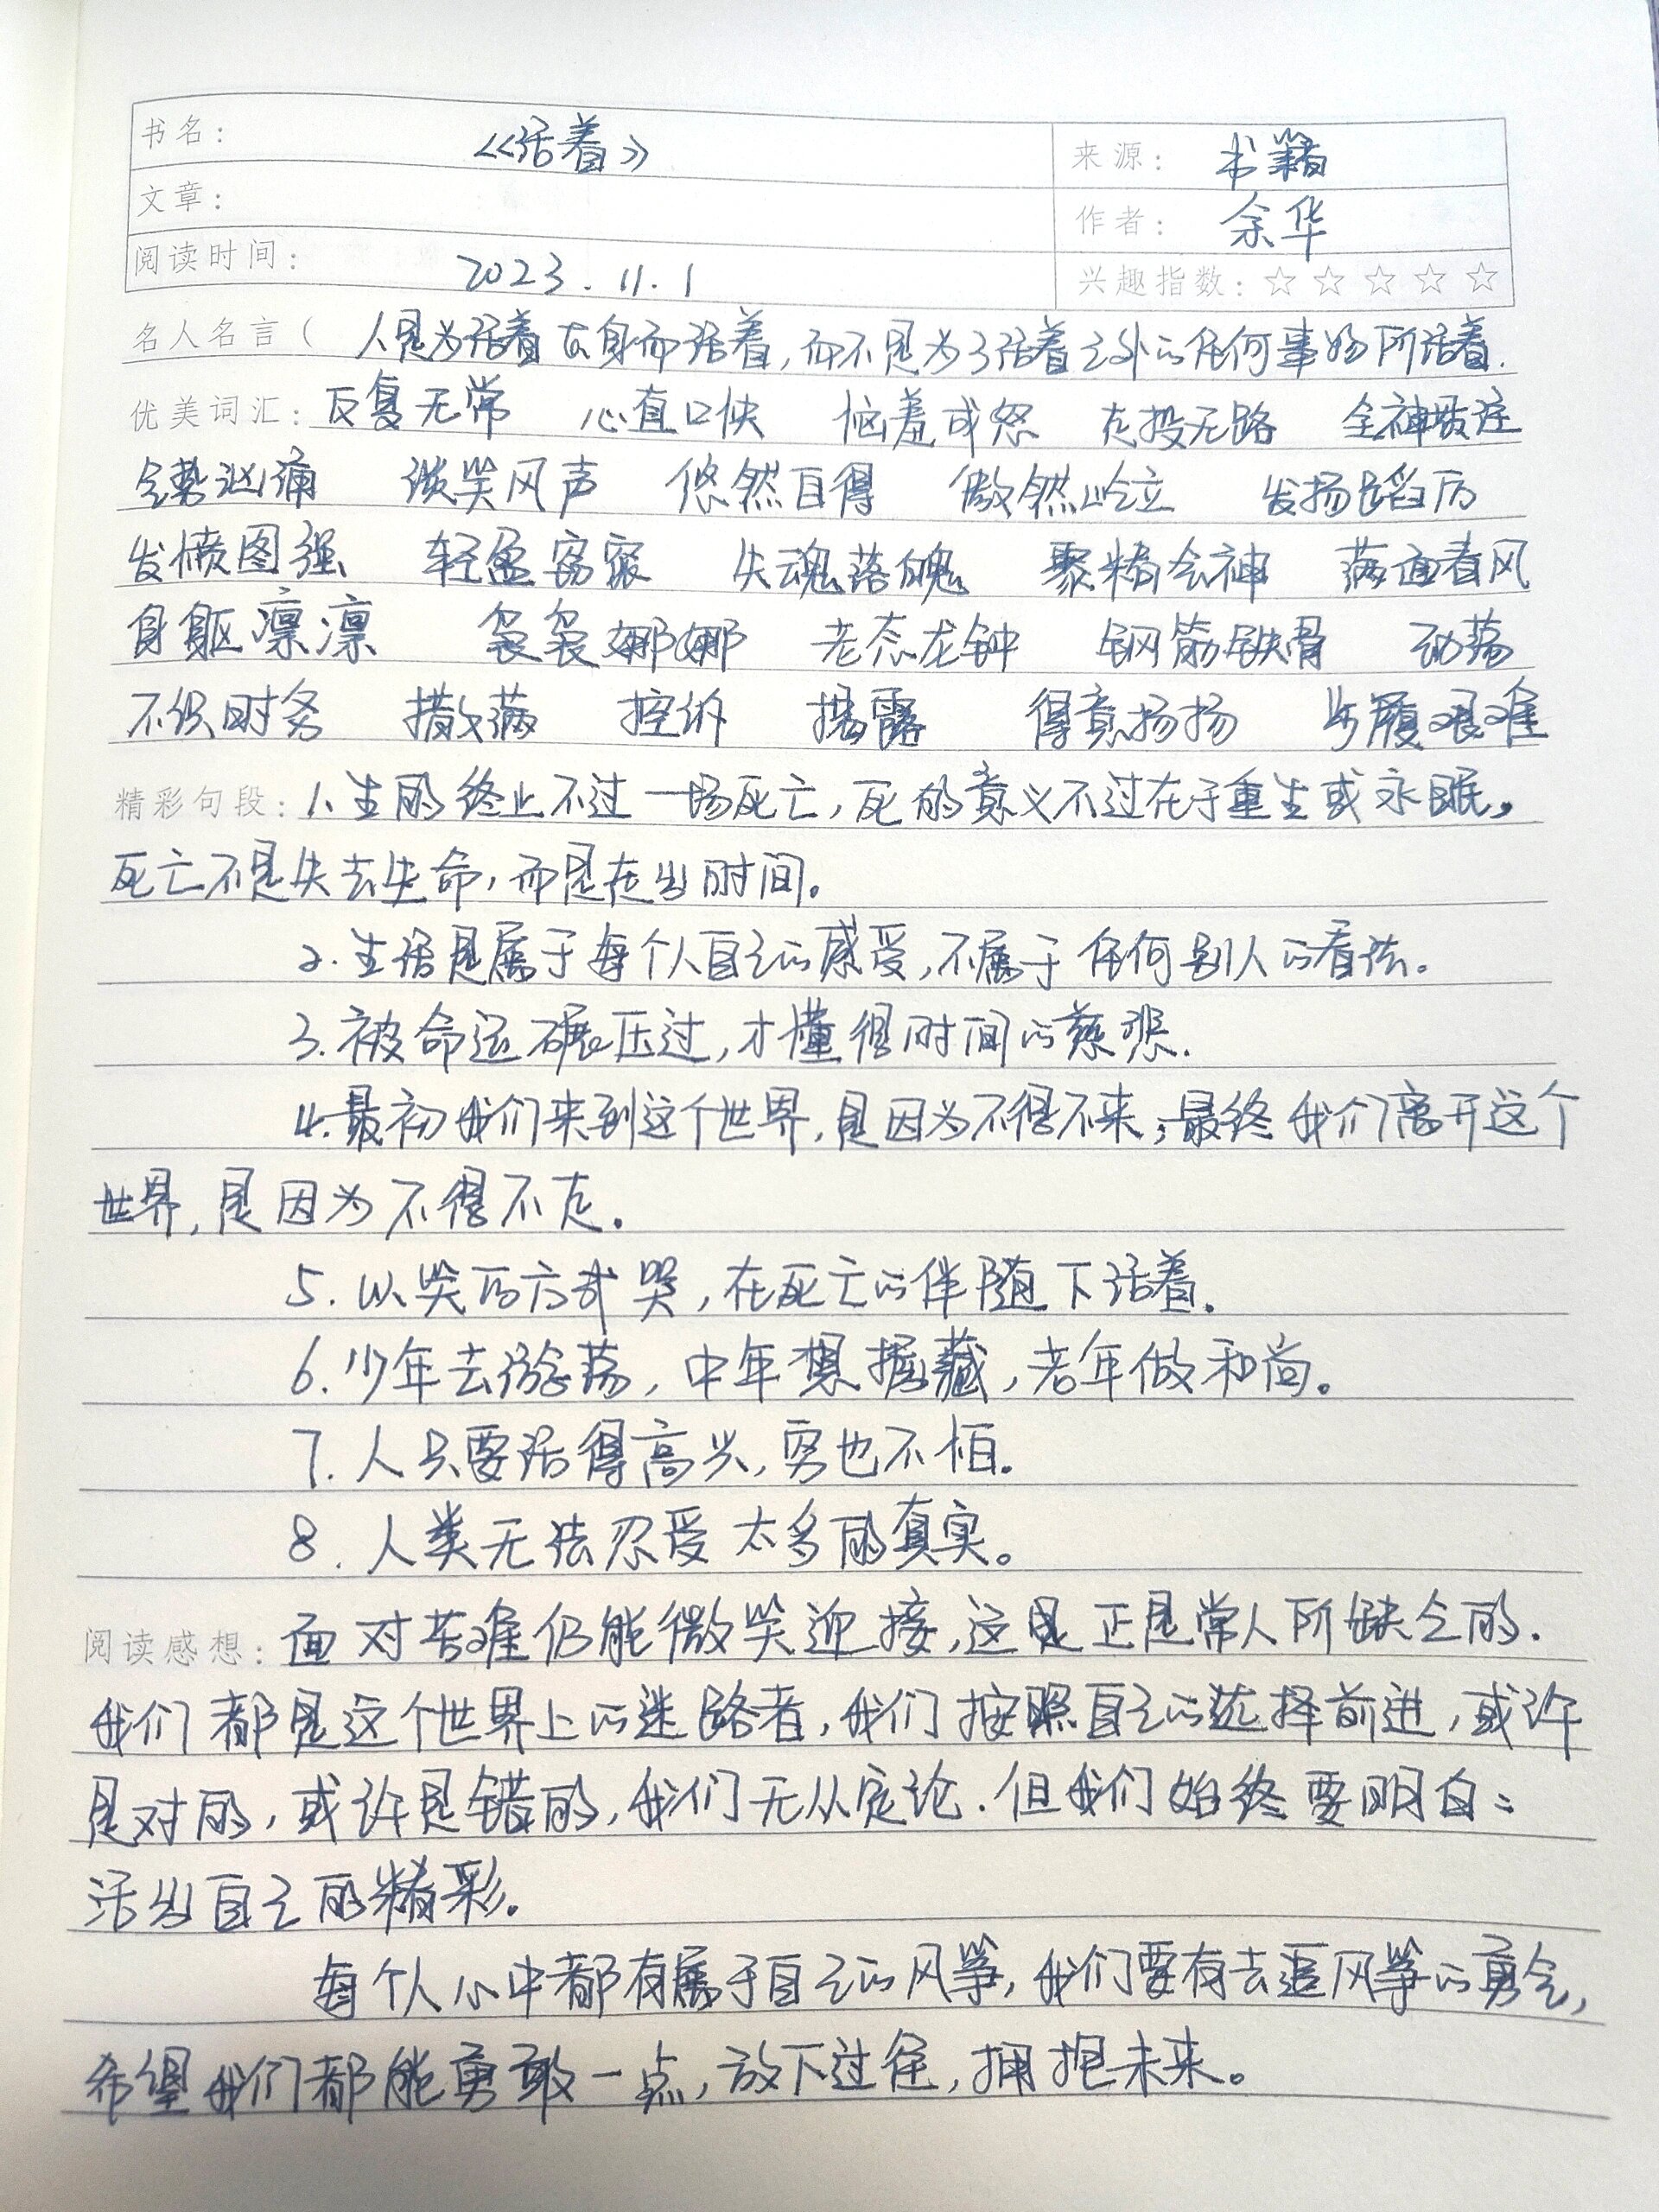 书名: 《活着》 来源: 书籍
文章: 作者: 余华
阅读时间: 2023.11.1 兴趣指数: ☆ ☆ ☆ ☆ ☆
名人名言( 人是为活着本身而活着,而不是为了活着之外的任何事物所活着.
优美词汇: 反复无常 心直口快 恼羞成怒 走投无路 全神贯注
会势汹涌 谈笑风声 悠然自得 傲然屹立 发扬蹈厉
发愤图强 轻盈 失魂落魄 聚精会神 满面春风
身躯凛凛 袅袅娜娜 老态龙钟 钢筋铁骨 动荡
不识时务 撒满 控诉 揭露 得意扬扬 步履艰难
精彩句段: 1、生的终止不过一场死亡,死的意义不过在于重生或永眠。
死亡不是失去生命,而是走出时间。
2.生活是属于每个人自己的感受,不属于任何别人的看法。
3.被命运碾压过,才懂得时间的慈悲.
4.最初我们来到这个世界,是因为不得不来;最终我们离开这个
世界,是因为不得不走.
5.以笑的方式哭,在死亡的伴随下活着.
6.少年去游荡,中年想掘藏,老年做和尚。
7.人只要活得高兴,穷也不怕.
8.人类无法忍受太多的真实。
阅读感想: 面对苦难仍能微笑迎接,这是正是常人所缺乏的.
我们都是这个世界上的迷路者,我们按照自己的选择前进,或许
是对的,或许是错的,我们无从定论.但我们始终要明白:
活出自己的精彩.
每个人心中都有属于自己的风筝,我们要有去追风筝的勇气,
希望我们都能勇敢一点,放下过往,拥抱未来。